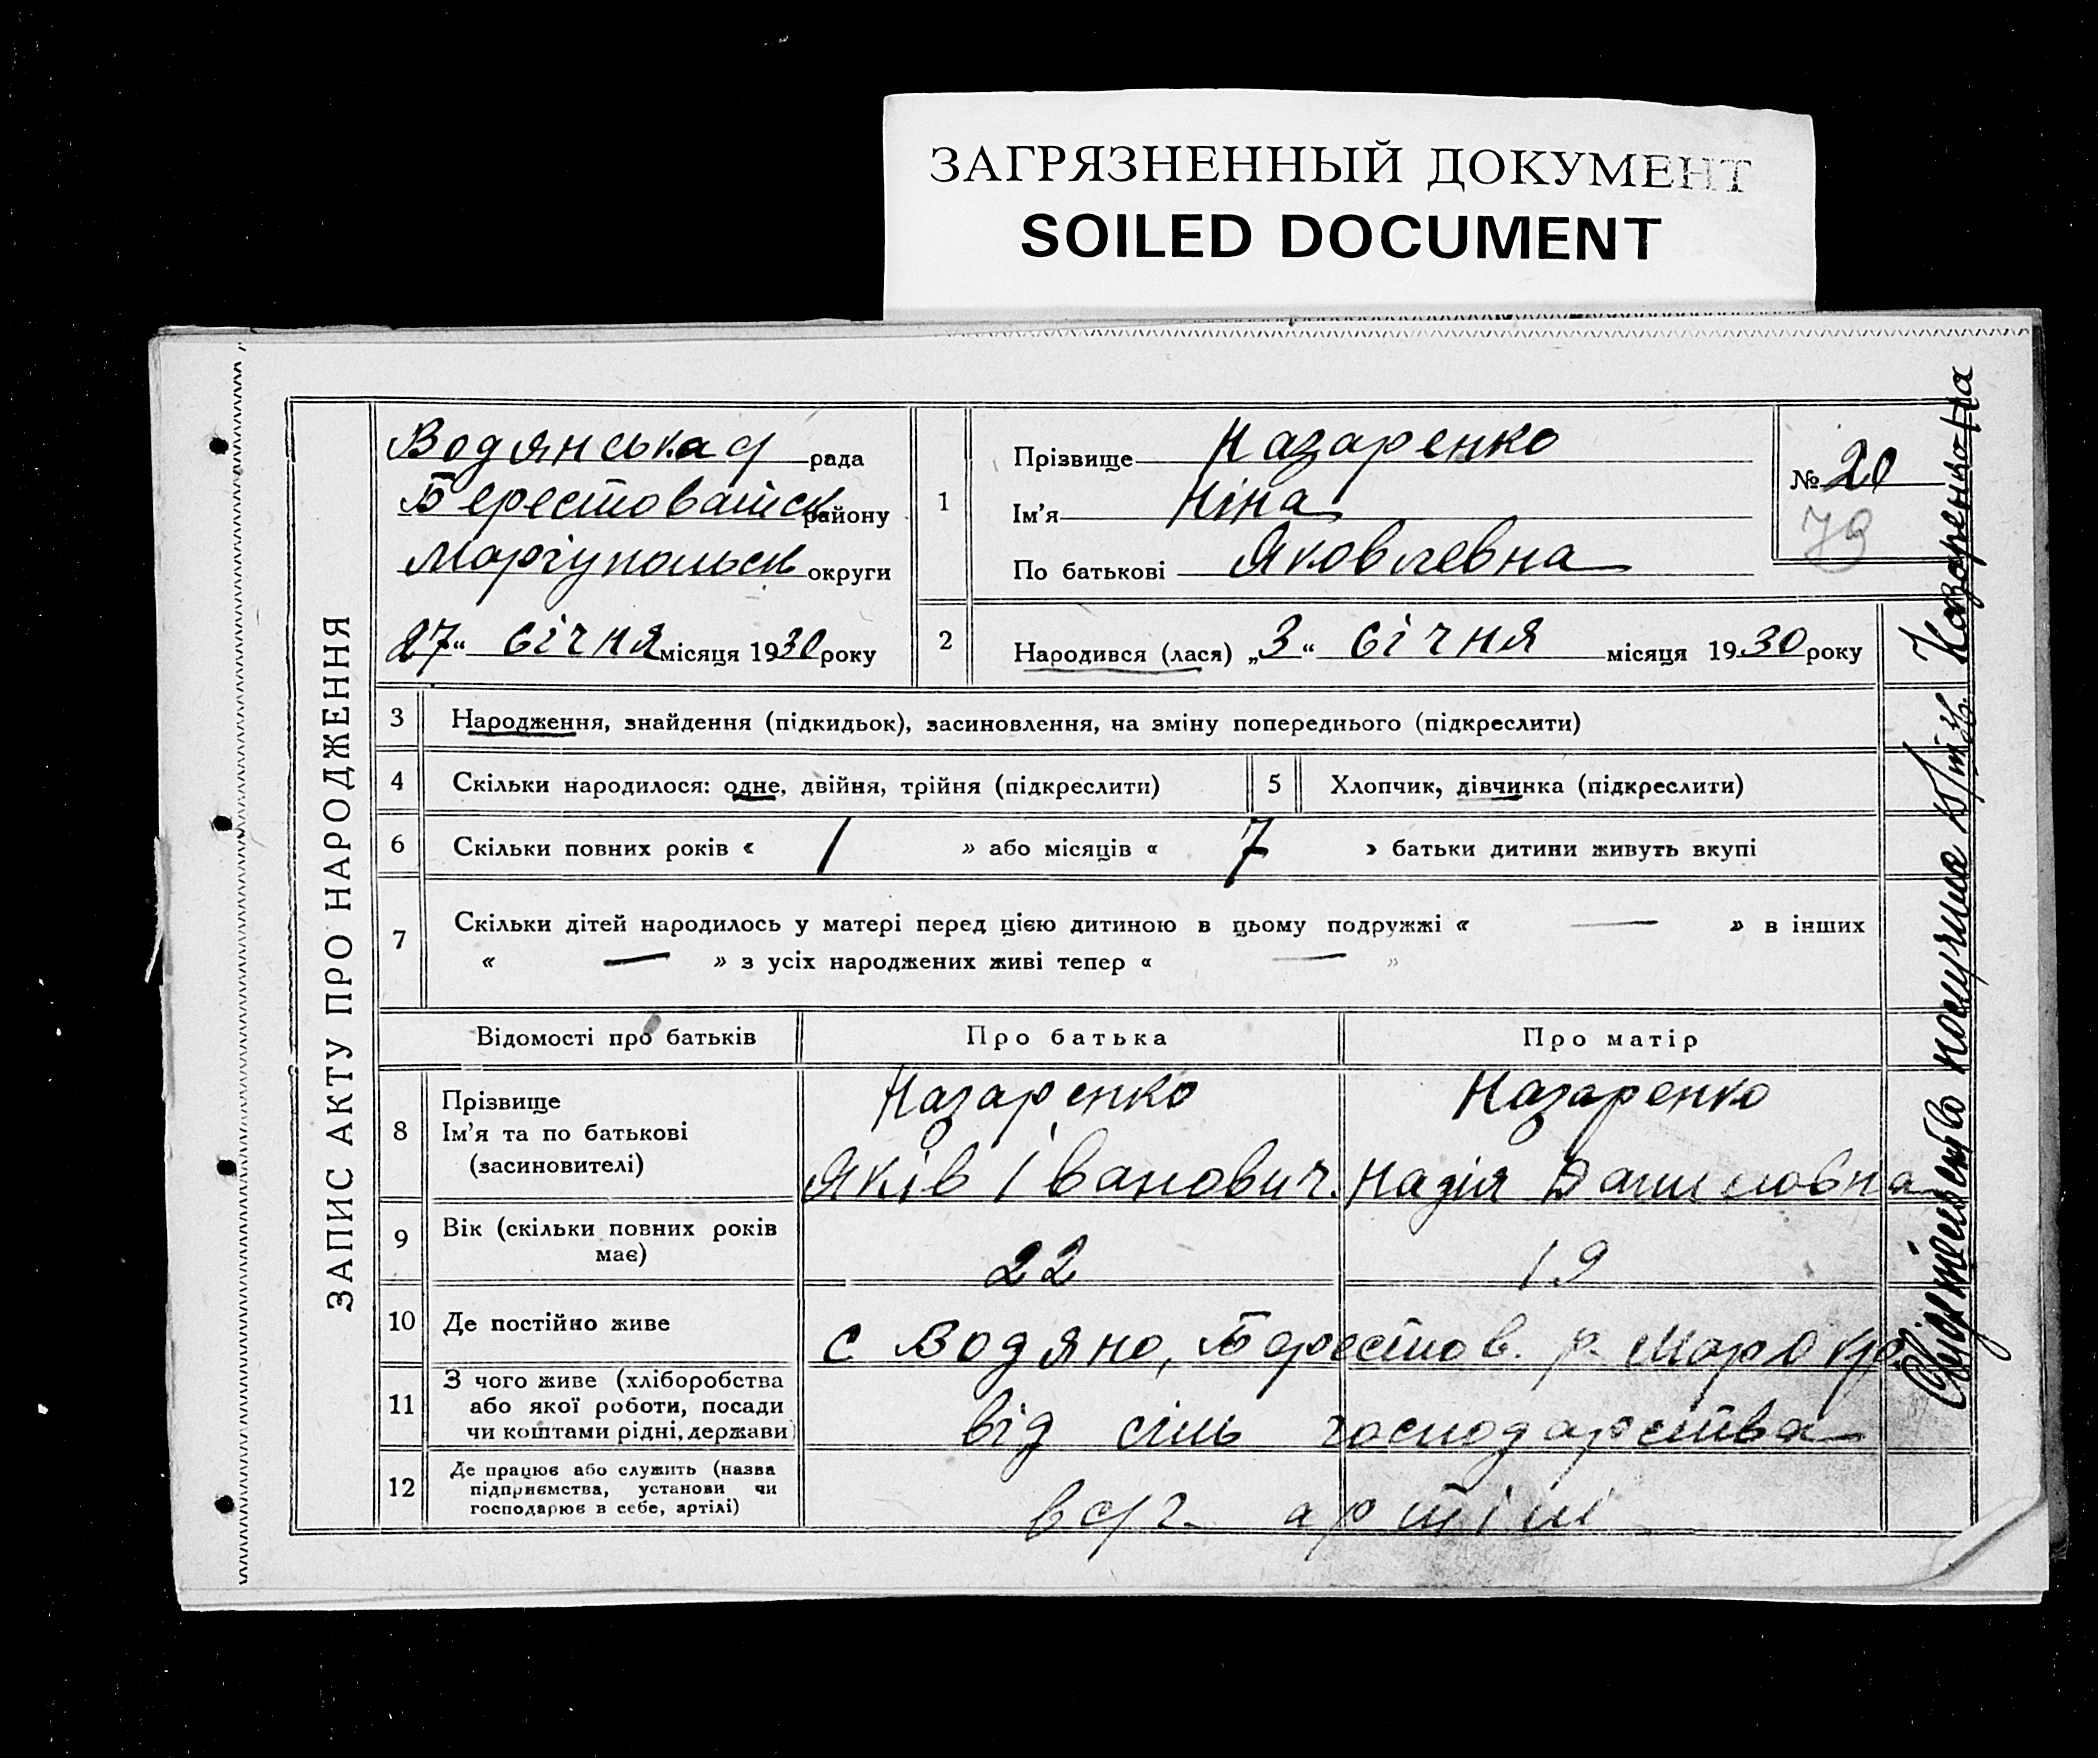 ЗАГРЯЗНЕННЫЙ ДОКУМЕНТ
SOILED DOCUMENT
ЗАПИС АКТУ ПРО НАРОДЖЕННЯ
Водянська с/ рада
Берестоватск району
Маріупольск округи
27 “ січня місяця 1930 року
1
Прізвище Назаренко
Ім’я Ніна
По батькові Яковлевна
№ 20
79
2
Народився (лася) „3“ січня місяця 1930 року
3 Народження, знайдення (підкидьок), засиновлення, на зміну попереднього (підкреслити)
4 Скільки народилося: одне, двійня, трійня (підкреслити)
5 Хлопчик, дівчинка (підкреслити)
6 Скільки повних років « 1 » або місяців « 7 » батьки дитини живуть вкупі
7 Скільки дітей народилось у матері перед цією дитиною в цьому подружжі « — » в інших
« — » з усіх народжених живі тепер « — »
Відомості про батьків Про батька Про матір
8 Прізвище
Ім’я та по батькові
(засиновителі)
Назаренко
Яків Іванович.
Назаренко
Надія Даниловна
9 Вік (скільки повних років
має)
22 19
10 Де постійно живе
с Водяно, Берестов. р. Мар окр.
11 З чого живе (хліборобства
або якої роботи, посади
чи коштами рідні, держави)
від сіль господарства
12 Де працює або служить (назва
підприємства, установи чи
господарює в себе, артілі)
в с/г. артілі
получила Назаренко